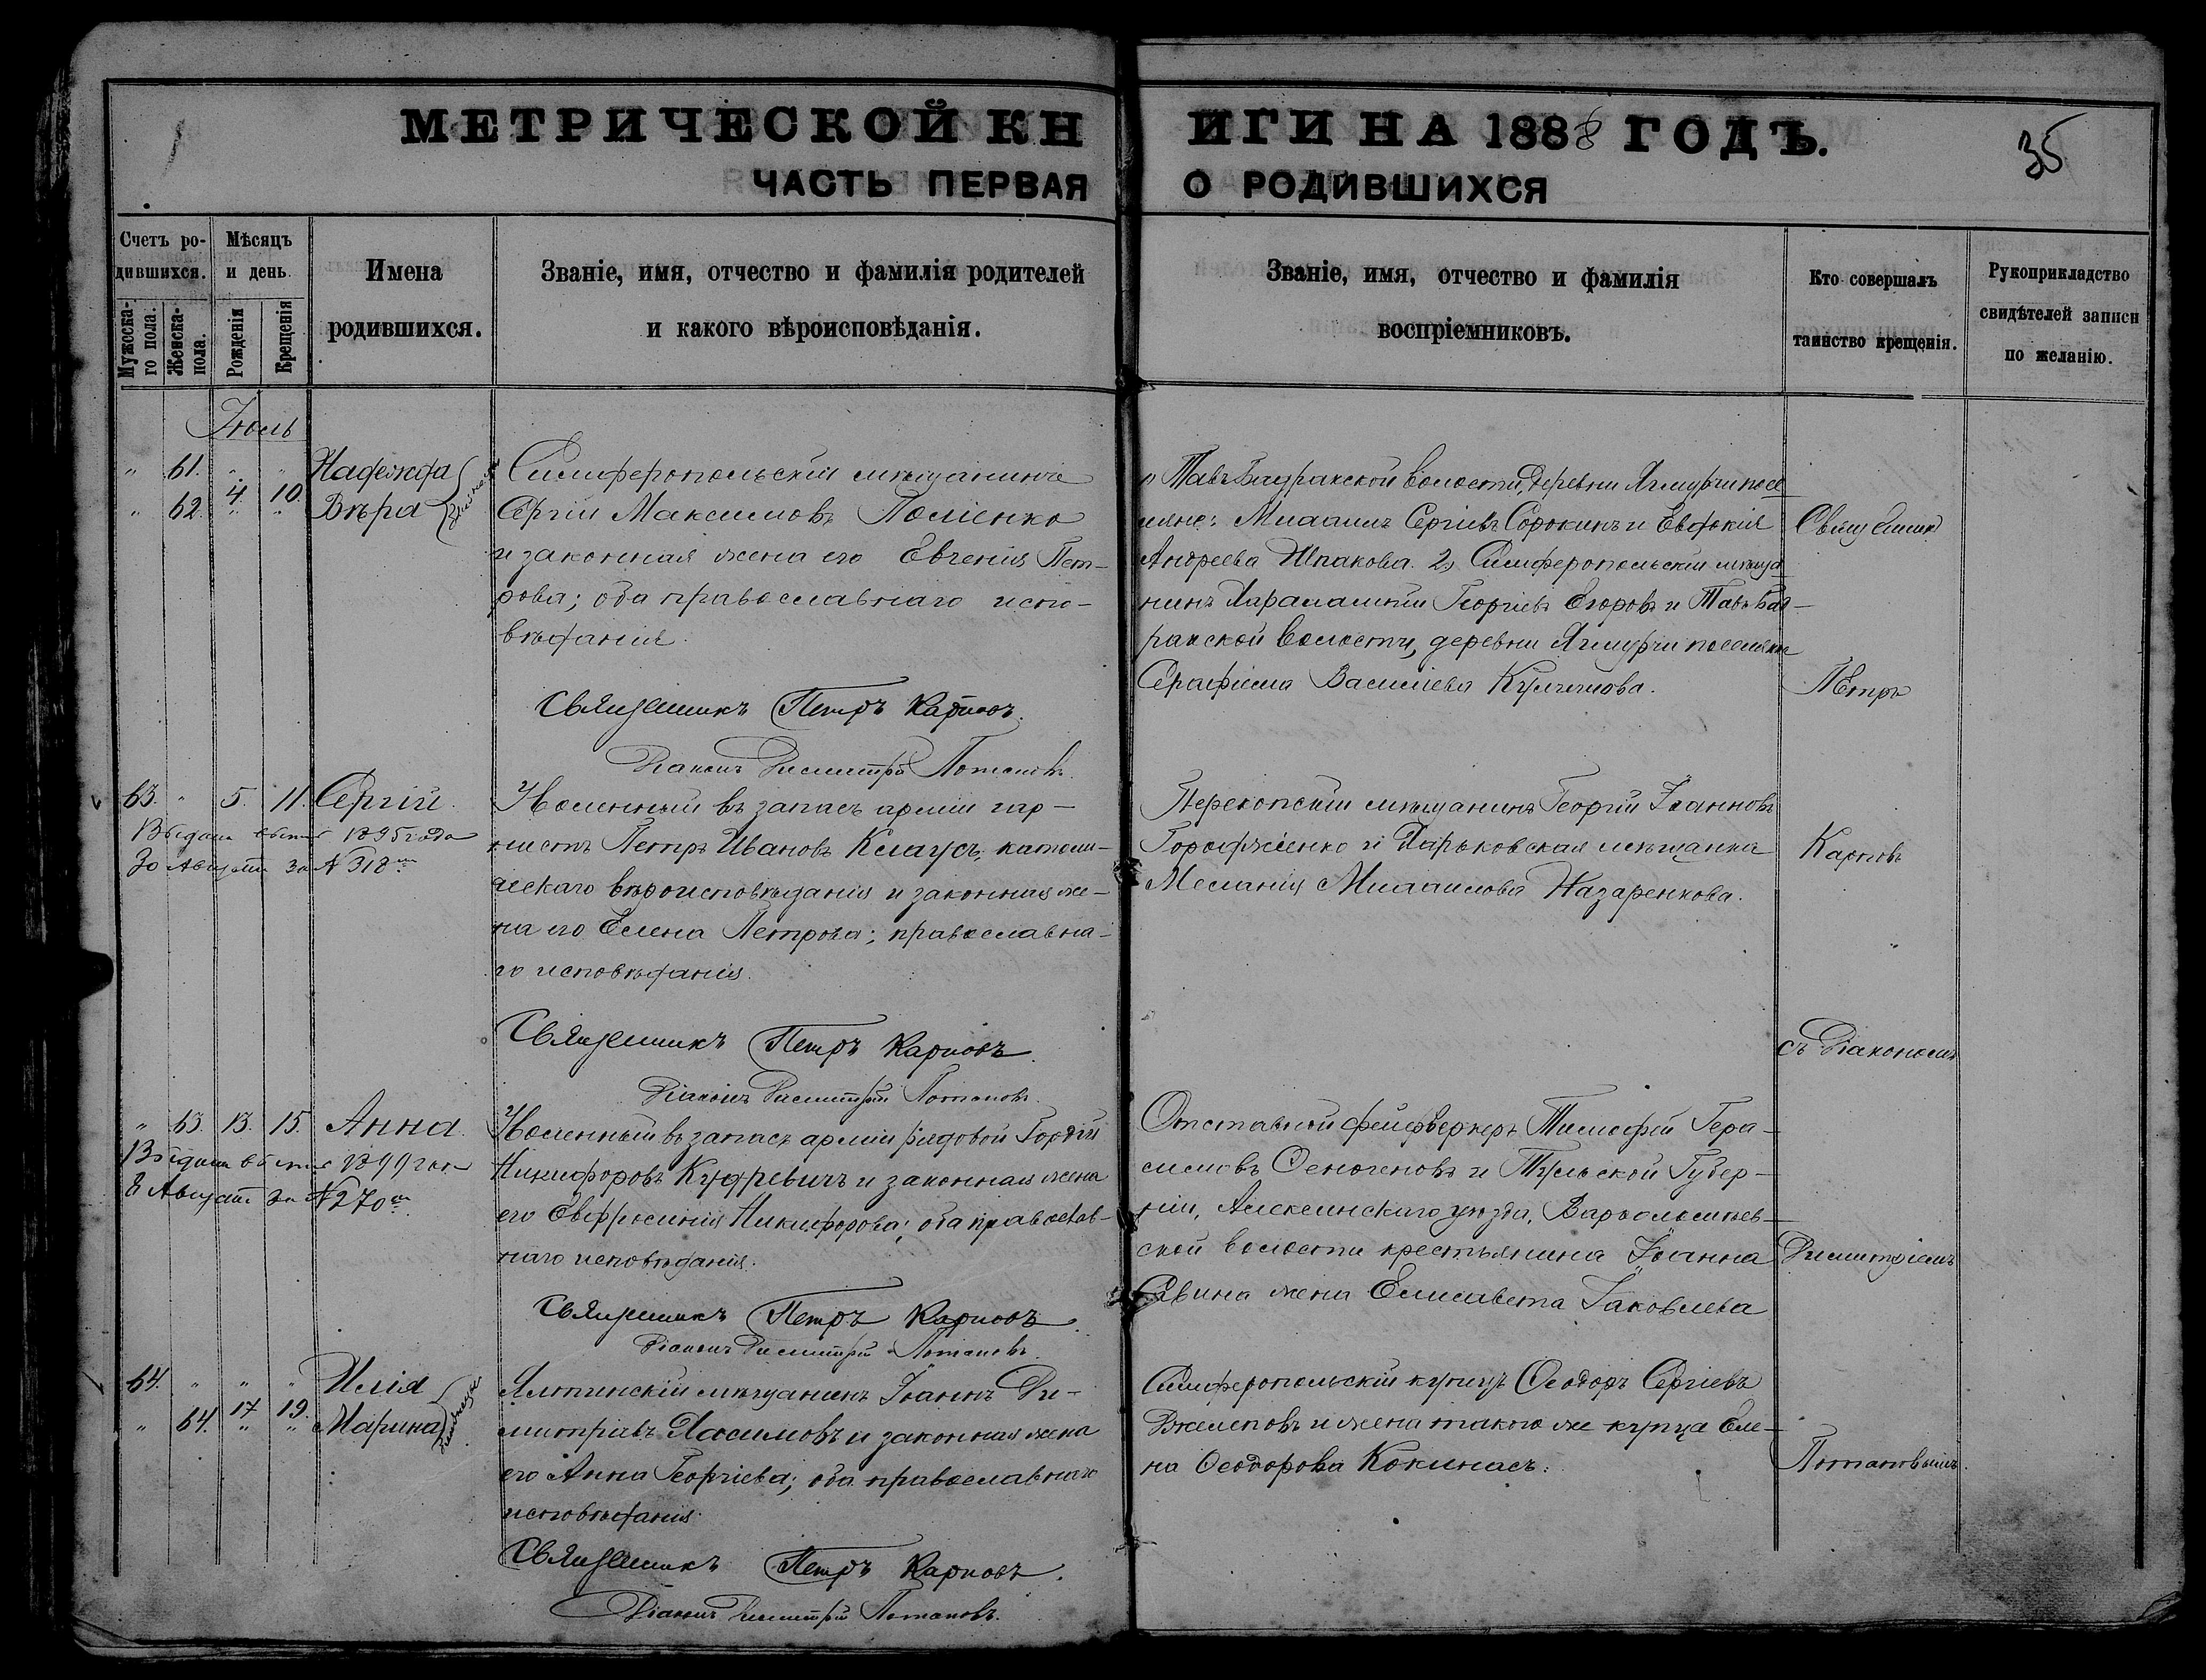 МЕТРИЧЕСКОЙ КНИГИ НА 1888 ГОДЪ.
35
ЧАСТЬ ПЕРВАЯ О РОДИВШИХСЯ
Счетъ ро-
дившихся.
Мужеска-
го пола.
Женска-
пола.
Мѣсяцъ
и день.
Рожденія
Крещенія
Имена
родившихся.
Званіе, имя, отчество и фамилія родителей
и какого вѣроисповѣданія.
Званіе, имя, отчество и фамилія
воспріемниковъ.
Кто совершалъ
таинство крещенія.
Рукоприкладство
свидѣтелей записи
по желанію.
Іюль
" 61. " " Надежда
" 62. 4. 10. Вѣра
Симферопольскій мѣщанинъ
Сергій Максимовъ
и законная жена его Евгенія Пет-
рова; оба православнаго испо-
вѣданія.
Священникъ Петръ Карповъ.
Діаконъ Димитрій Потаповъ.
волости, деревни
ляне: Михаилъ Сергіевъ Сорокинъ и Евдокія
Андреева Шпакова. 2) Симферопольскій мѣща
нинъ Харалампій Георгіевъ Егоровъ и
ракской волости, деревни
Серафима Василіева
63. " 5. 11. Сергій.
Выдана 1895 года
30 Августа за № 318
Уволенный въ запасъ арміи гор-
нистъ Петръ Ивановъ Клаусъ, католи-
ческаго вѣроисповѣданія и законная же-
на его Елена Петрова; православна-
го исповѣданія.
Священникъ Петръ Карповъ.
Діаконъ Димитрій Потаповъ.
Перекопскій мѣщанинъ Георгій Іоанновъ
и Харьковская мѣщанка
Меланія Михаилова Назаренкова.
" 63. 13. 15. Анна.
Выдана 1899 года
8 Августа за № 270
Уволенный въ запасъ арміи рядовой Гордій
Никифоровъ Кудревичъ и законная жена
его Евфросинія Никифорова; оба православ-
наго исповѣданія.
Священникъ Петръ Карповъ.
Діаконъ Димитрій Потаповъ.
Отставной фейерверкеръ Тимофей Гера-
симовъ и Тульской Губер-
ніи, Алексинскаго уѣзда, Варѳоломеев-
ской волости крестьянина Іоанна
Савина жена Елисавета Іаковлева
64. " " " Илія
" 64. 17 19. Марина
Ялтинскій мѣщанинъ Іоаннъ Ди-
митріевъ и законная жена
его Анна Георгіева; оба православнаго
исповѣданія.
Священникъ Петръ Карповъ.
Діаконъ Димитрій Потаповъ.
Симферопольскій купецъ Ѳеодоръ Сергіевъ
и жена такого же купца Еле-
на Ѳеодорова Кокинасъ.
Священникъ
Петръ
Карповъ
съ Діакономъ
Димитріемъ
Потаповымъ.